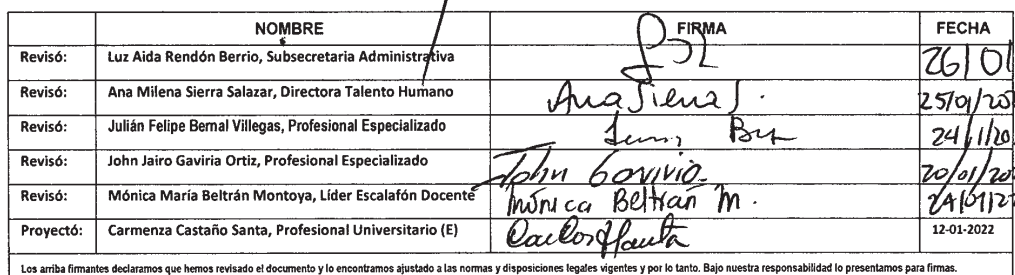 NOMBRE FIRMA FECHA
Revisó: Luz Aida Rendón Berrio, Subsecretaria Administrativa 26/01
Revisó: Ana Milena Sierra Salazar, Directora Talento Humano Ana Sierra S. 25/01/20
Revisó: Julián Felipe Bernal Villegas, Profesional Especializado 24/1/20
Revisó: John Jairo Gaviria Ortiz, Profesional Especializado John Gaviria 20/01/20
Revisó: Mónica María Beltrán Montoya, Líder Escalafón Docente Mónica Beltrán M. 24/01/2
Proyectó: Carmenza Castaño Santa, Profesional Universitario (E) 12-01-2022
Los arriba firmantes declaramos que hemos revisado el documento y lo encontramos ajustado a las normas y disposiciones legales vigentes y por lo tanto. Bajo nuestra responsabilidad lo presentamos para firmas.